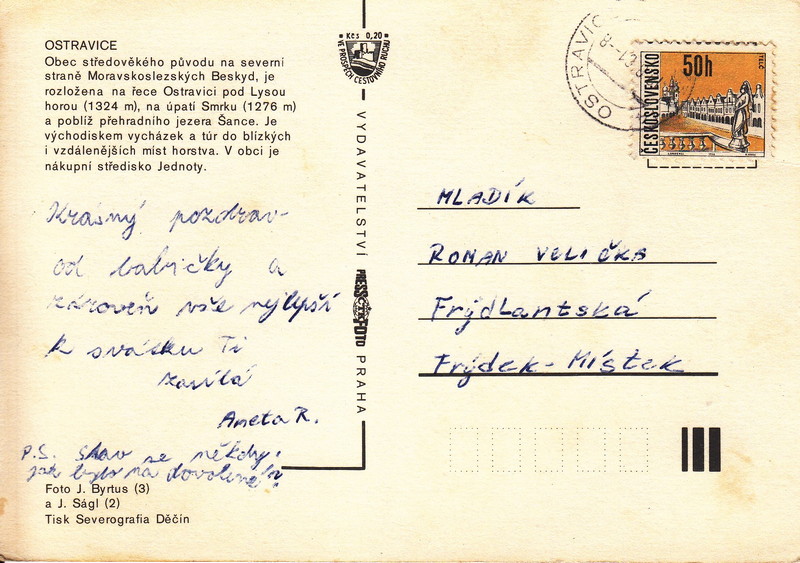 OSTRAVICE
Obec středověkého původu na severní
straně Moravskoslezských Beskyd, je
rozložena na řece Ostravici pod Lysou
horou (1324 m), na úpatí Smrku (1276 m)
a poblíž přehradního jezera Šance. Je
východiskem vycházek a túr do blízkých
i vzdálenějších míst horstva. V obci je
nákupní středisko Jednoty.
Krásný pozdrav
od babičky a
zároveň vše nejlepší
k svátku Ti
zasílá
Aneta R.
P.S. Stav se někdy,
jak bylo na dovolené?
Foto J. Byrtus (3)
a J. Ságl (2)
Tisk Severografia Děčín
Kčs 0,20
VE PROSPĚCH CESTOVNÍHO RUCHU
VYDAVATELSTVÍ PRESSFOTO PRAHA
OSTRAVIC
ČESKOSLOVENSKO
50h
TELČ
MLADÍK
ROMAN VELIČKA
Frýdlantská
Frýdek-Místek